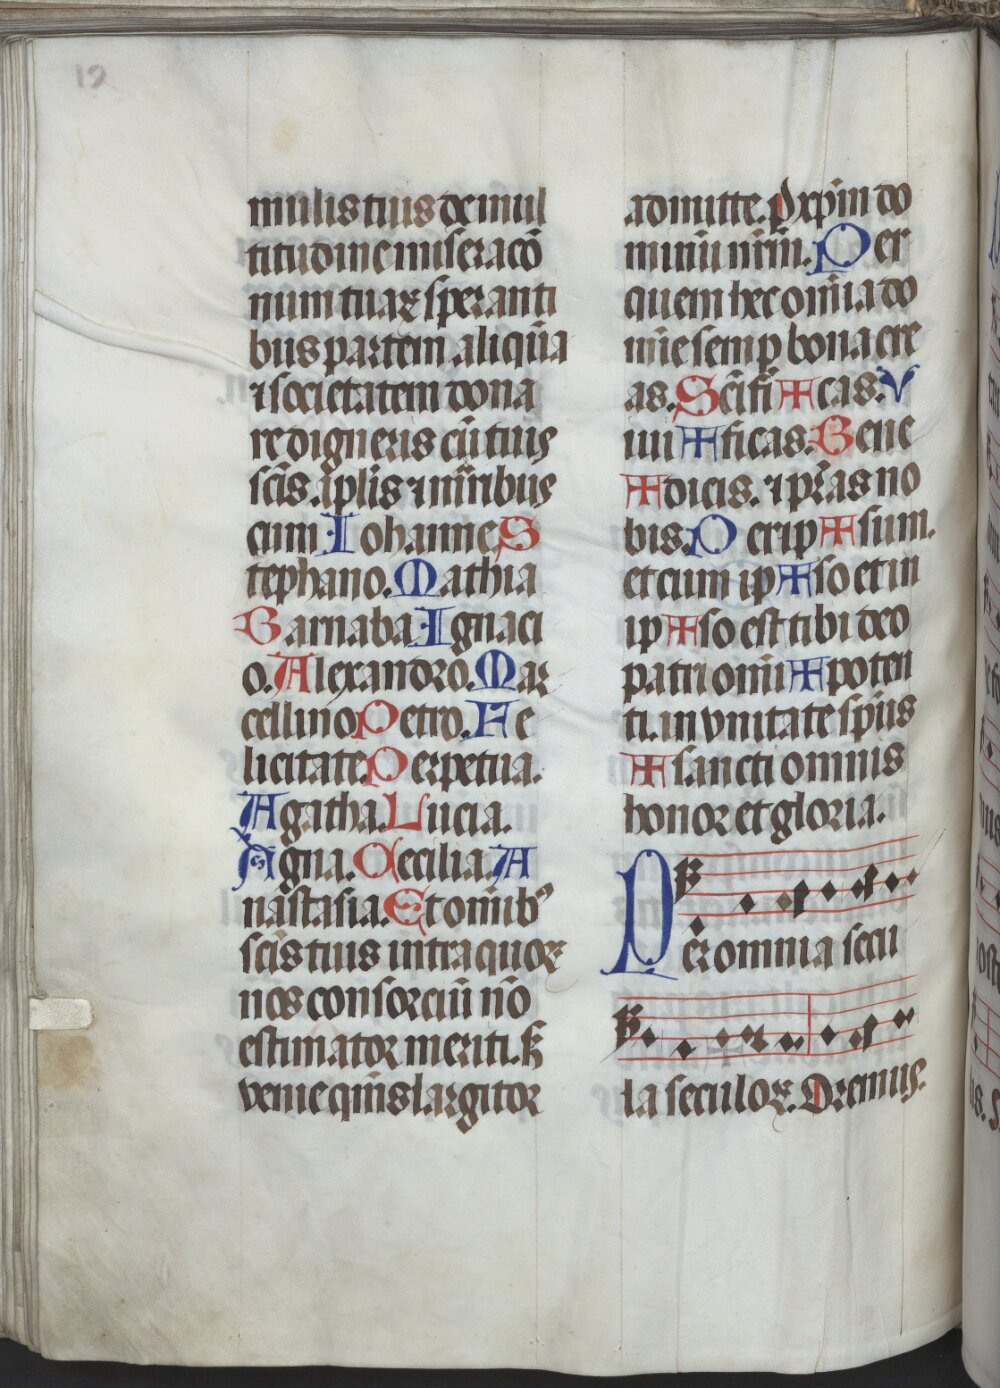 12
mulis tuis de mul
titudine miseracō
num tuaꝝ speranti
bus partem aliquā
⁊ societatem dona
re digneris cū tuis
scīs. aplīs ⁊ mr̄ibus
cum Iohanne S
tephano. Mathia
Barnaba Ignaci
o. Alexandro. Mar
cellino Petro. Fe
licitate Perpetua.
Agatha. Lucia.
Agna. Cecilia. A
nastasia. Et om̄ibꝰ
scīs tuis intra quoꝝ
nos consorciū nō
estimator meriti. ß
venie qm̄s largitor
admitte. P xp̄m do
minū nr̄m. Per
quem hec om̄ia do
mīe semp bona cre
as. Scīfi ✠ cas. V
iui ✠ ficas. Bene
✠ dicis. ⁊ pr̄as no
bis. Per ip ✠ sum.
et cum ip ✠ so et in
ip ✠ so est tibi deo
patri omī ✠ poten
ti. in vnitate sp̄us
✠ sancti omnis
honor et gloria.
Per omnia secu
la seculoꝝ. Oremus.